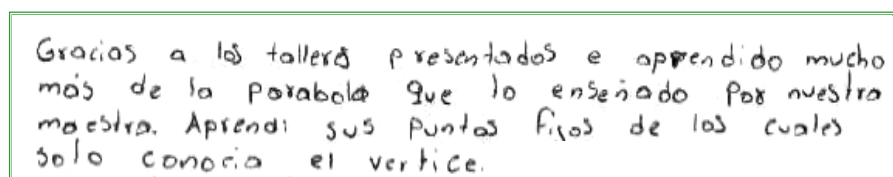 Gracias a los tallers presentados e aprendido mucho
más de la parabola que lo enseñado por nuestra
maestra. Aprendi sus puntos fijos de los cuales
solo conocia el vertice.